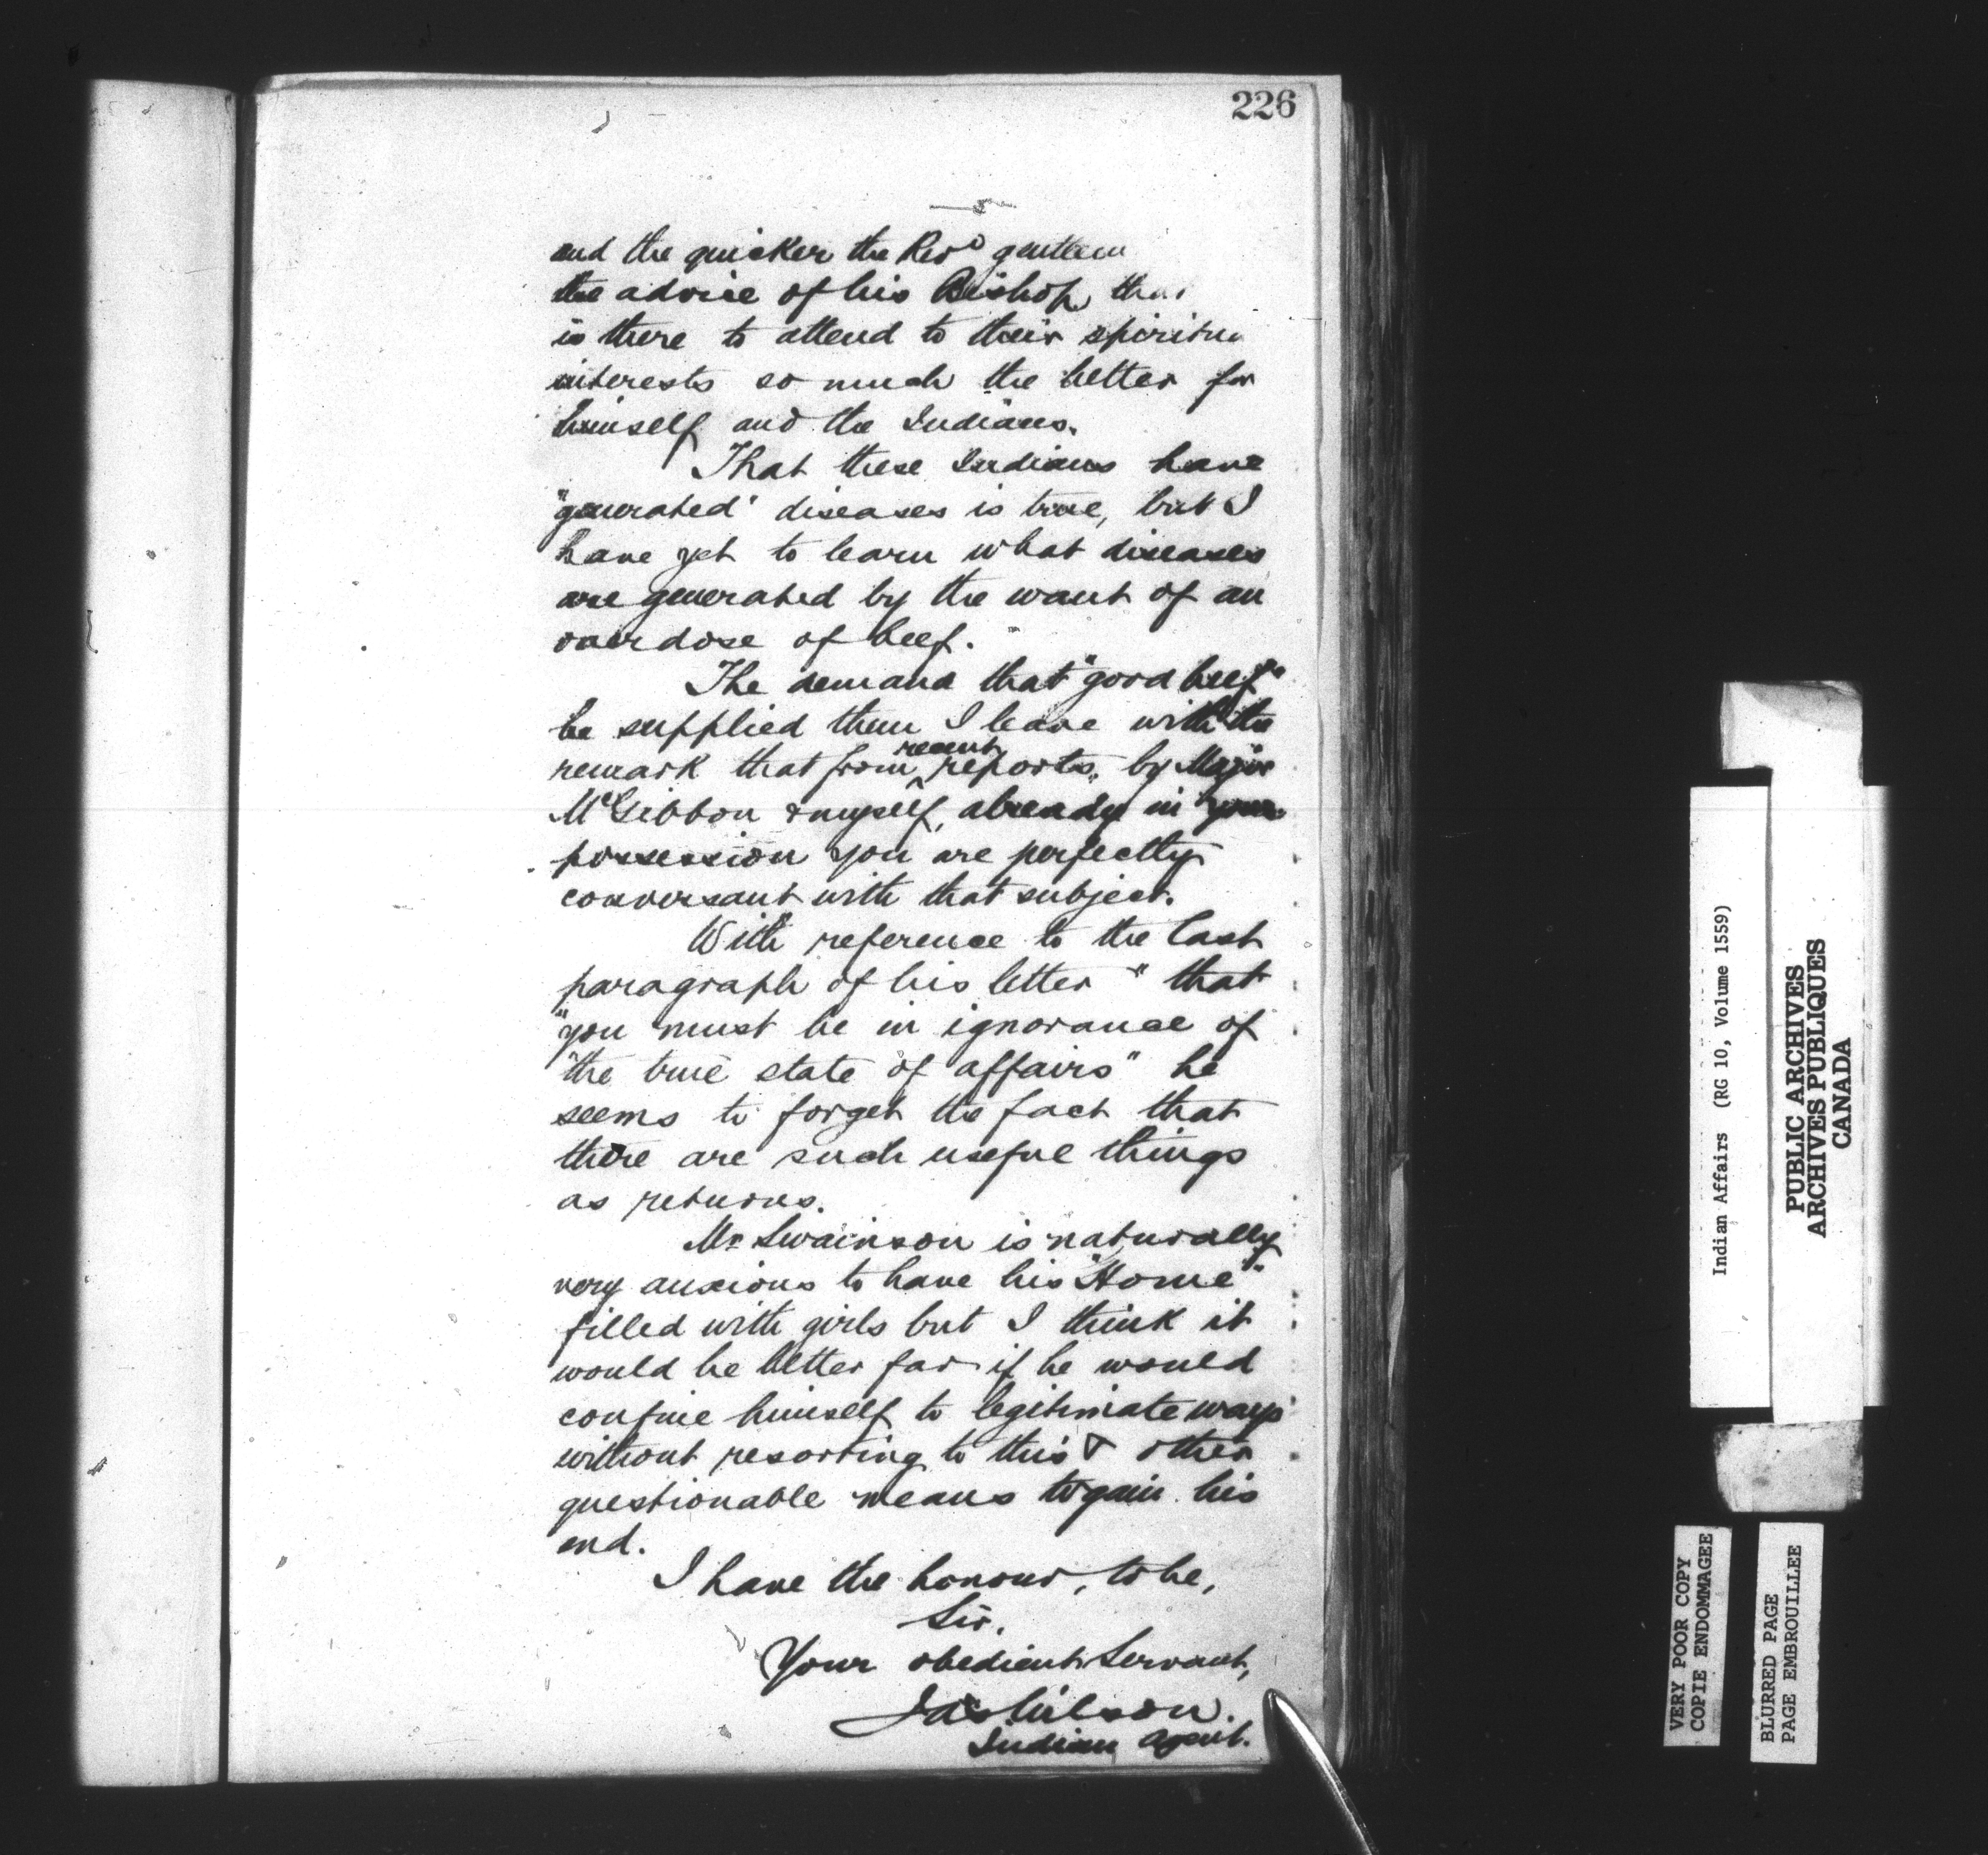 226
5
and the quicker the Revd gentlem
the advice of his Bishop, that
is there to attend to their spiritu
interests so much the better for
himself and the Indians.
That these Indians have
"generated" diseases is true, but I
have yet to learn what diseases
are generated by the want of an
overdose of beef.
The demand that "good beef"
be supplied them I leave with the
remark that from recent reports, by Major
McGibbon & myself, already in your
possession you are perfectly
conversant with that subject.
With reference to the last
paragraph of his letter "that
"you must be in ignorance of
"the true state of affairs" he
seems to forget the fact that
there are such useful things
as returns.
Mr Swainson is naturally
very anxious to have his "Home"
filled with girls but I think it
would be better far if he would
confine himself to legitimate ways
without resorting to this & other
questionable means to gain his
end.
I have the honour, to be,
Sir,
Your obedient Servant,
Jas Wilson.
Indian Agent.
Indian Affairs (RG 10, Volume 1559)
PUBLIC ARCHIVES
ARCHIVES PUBLIQUES
CANADA
VERY POOR COPY
COPIE ENDOMMAGEE
BLURRED PAGE
PAGE EMBROUILLEE